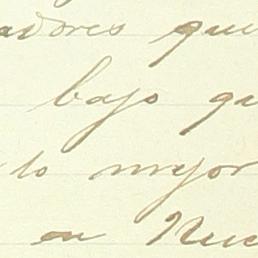 adores que
bajo qu
lo mejor
en Nue